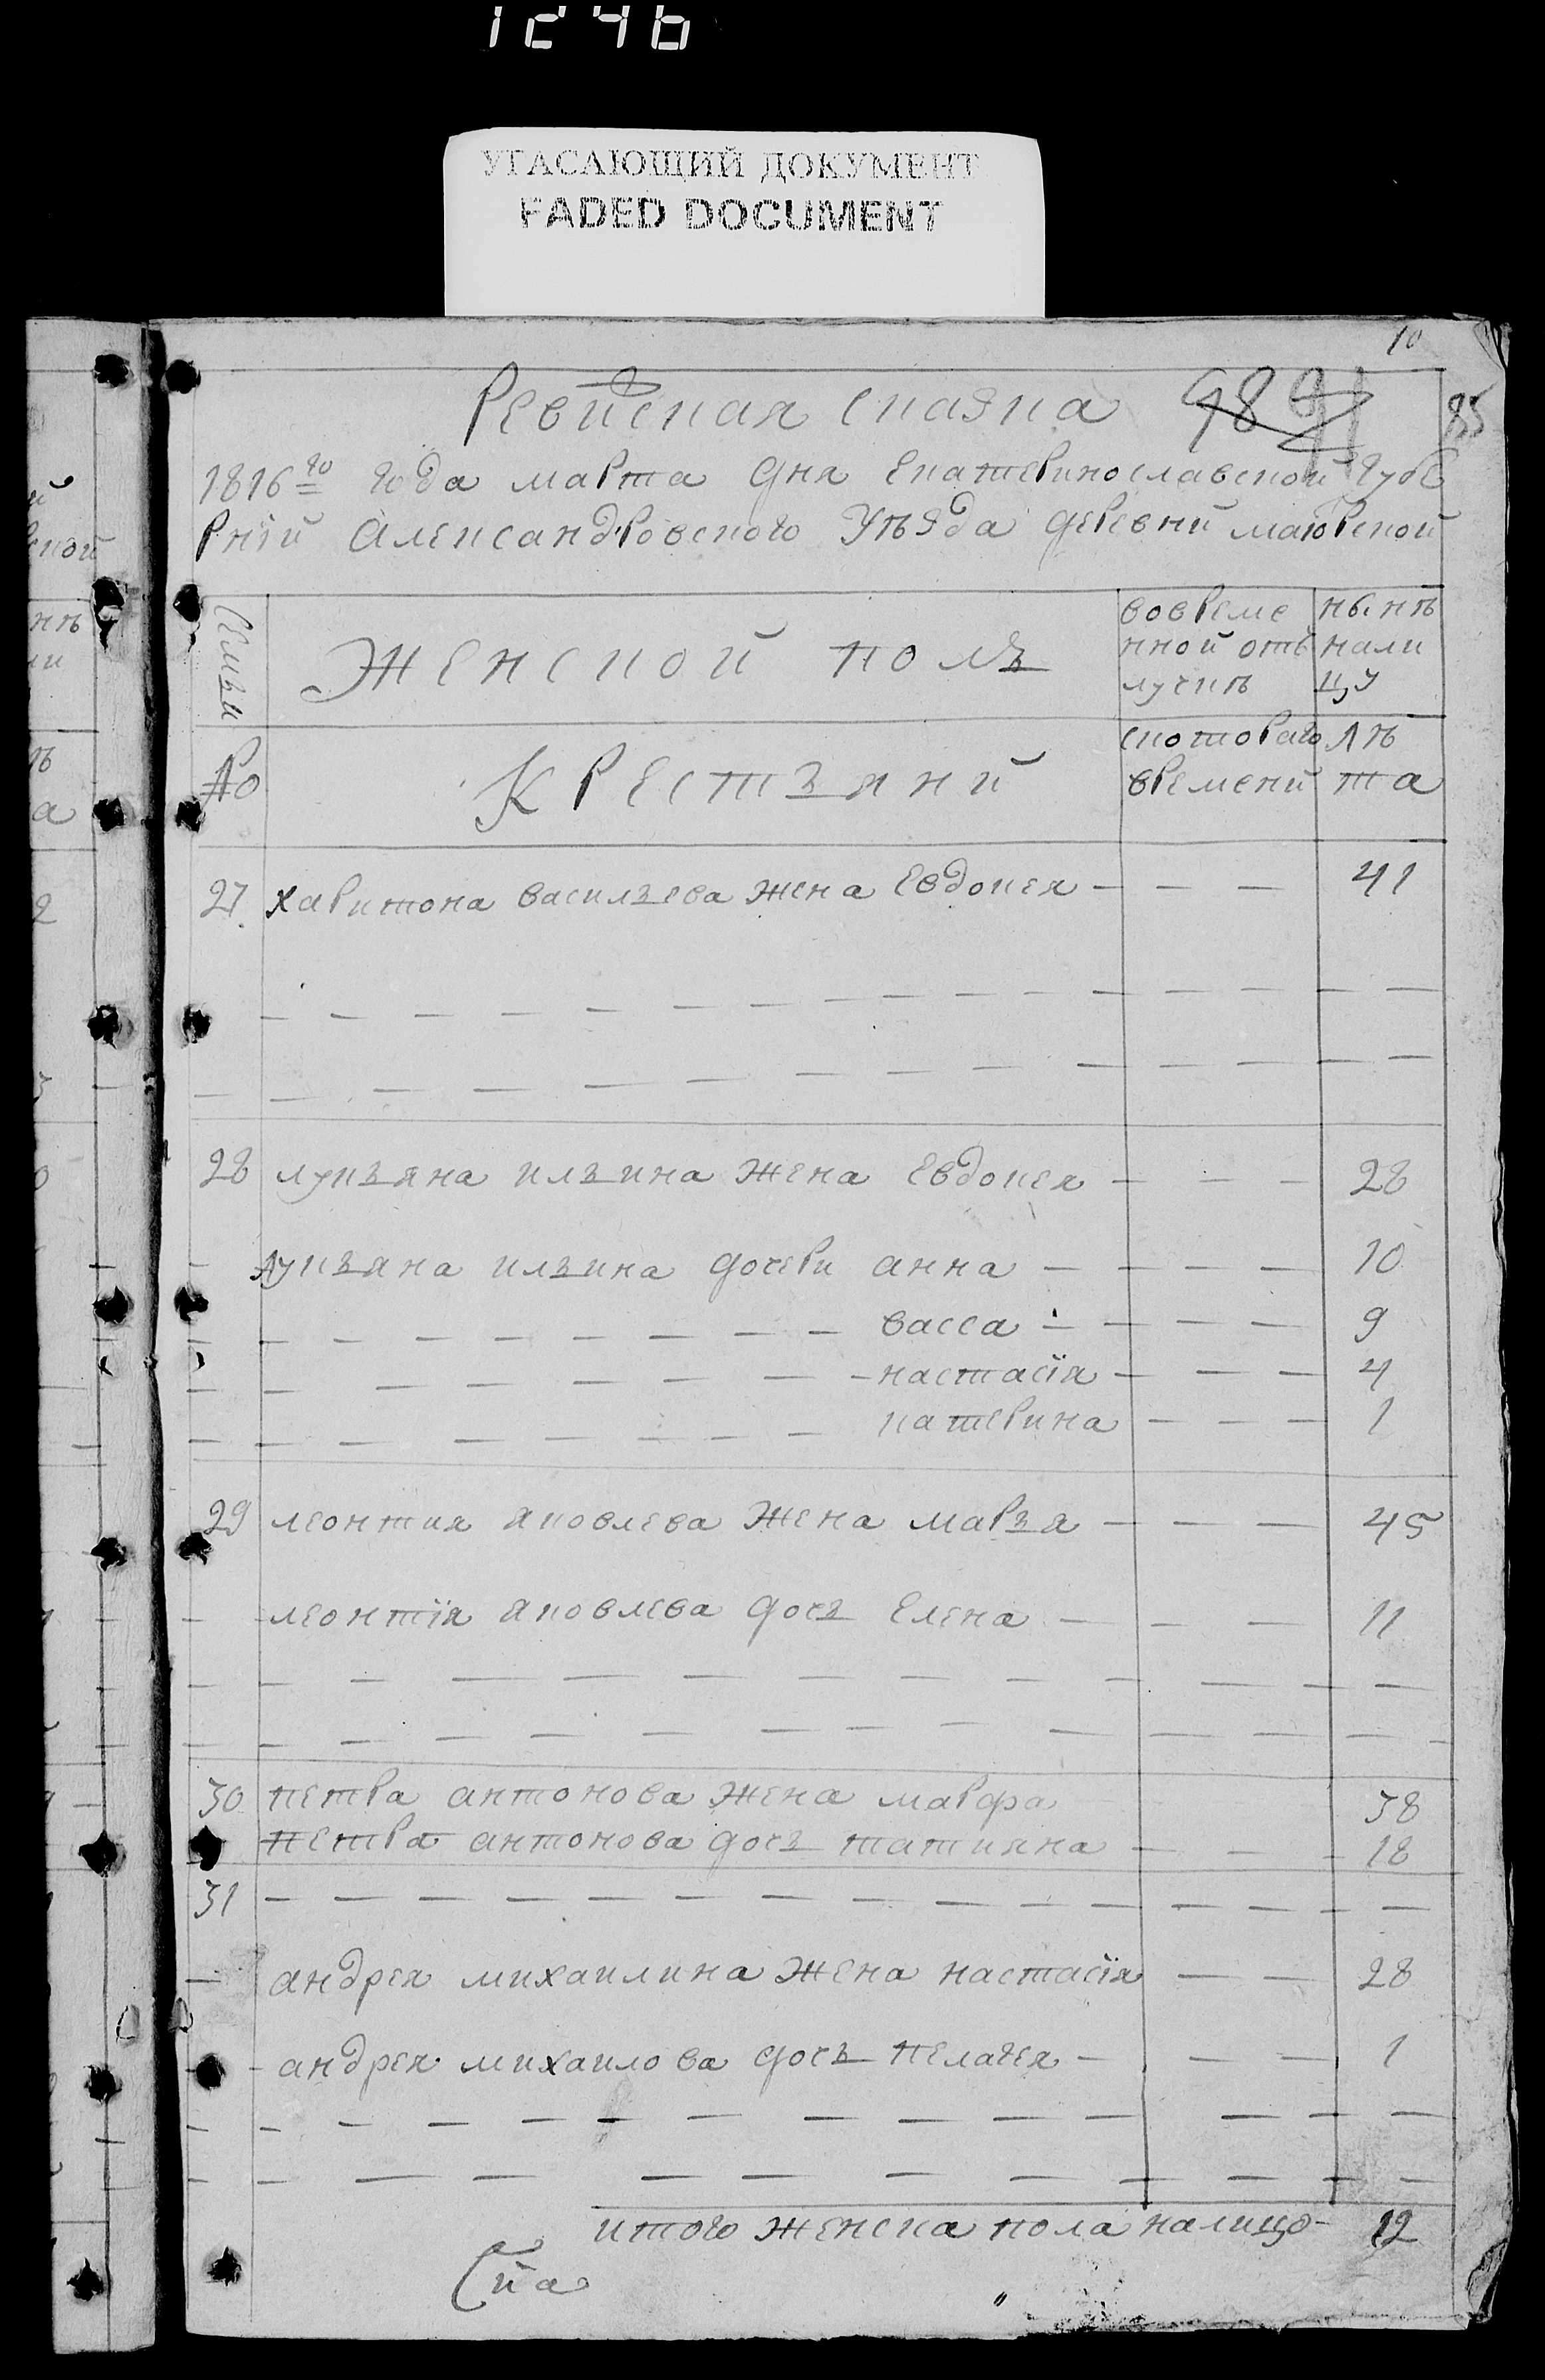 1246
УГАСАЮЩИЙ ДОКУМЕНТ
FADED DOCUMENT
10
Ревиская сказка
85
1816го года марта дня Екатеринославской Губе
рнiй Александровского Уѣзда деревнй маюрской
Семьи
Женской полъ
вовреме
нной отъ
лучкѣ
нынѣ
нали
цу
№
Крестьянй
скотораго
временй
лѣ
та
27 харитона васильева жена Евдокея — — — 41
28 лукьяна ильина жена Евдокея — — — 28
— лукьяна ильина дочери анна — — — — 10
васса — — — — 9
настасiя — — — 4
катерина — — — 1
29 леонтия яковлева жена марья — — — 45
— леонтiя яковлева дочь Елена — — — 11
30 петра антонова жена марфа 38
петра антонова дочь татияна — — — 18
31
— андрея михаилина жена настасiя — — 28
— андрея михаилова дочь пелагея — — — 1
итого женска пола налицо — 12